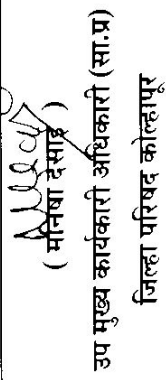 ( मनिषा देसाई )
उप मुख्य कार्यकारी अधिकारी (सा.प्र)
जिल्हा परिषद कोल्हापूर